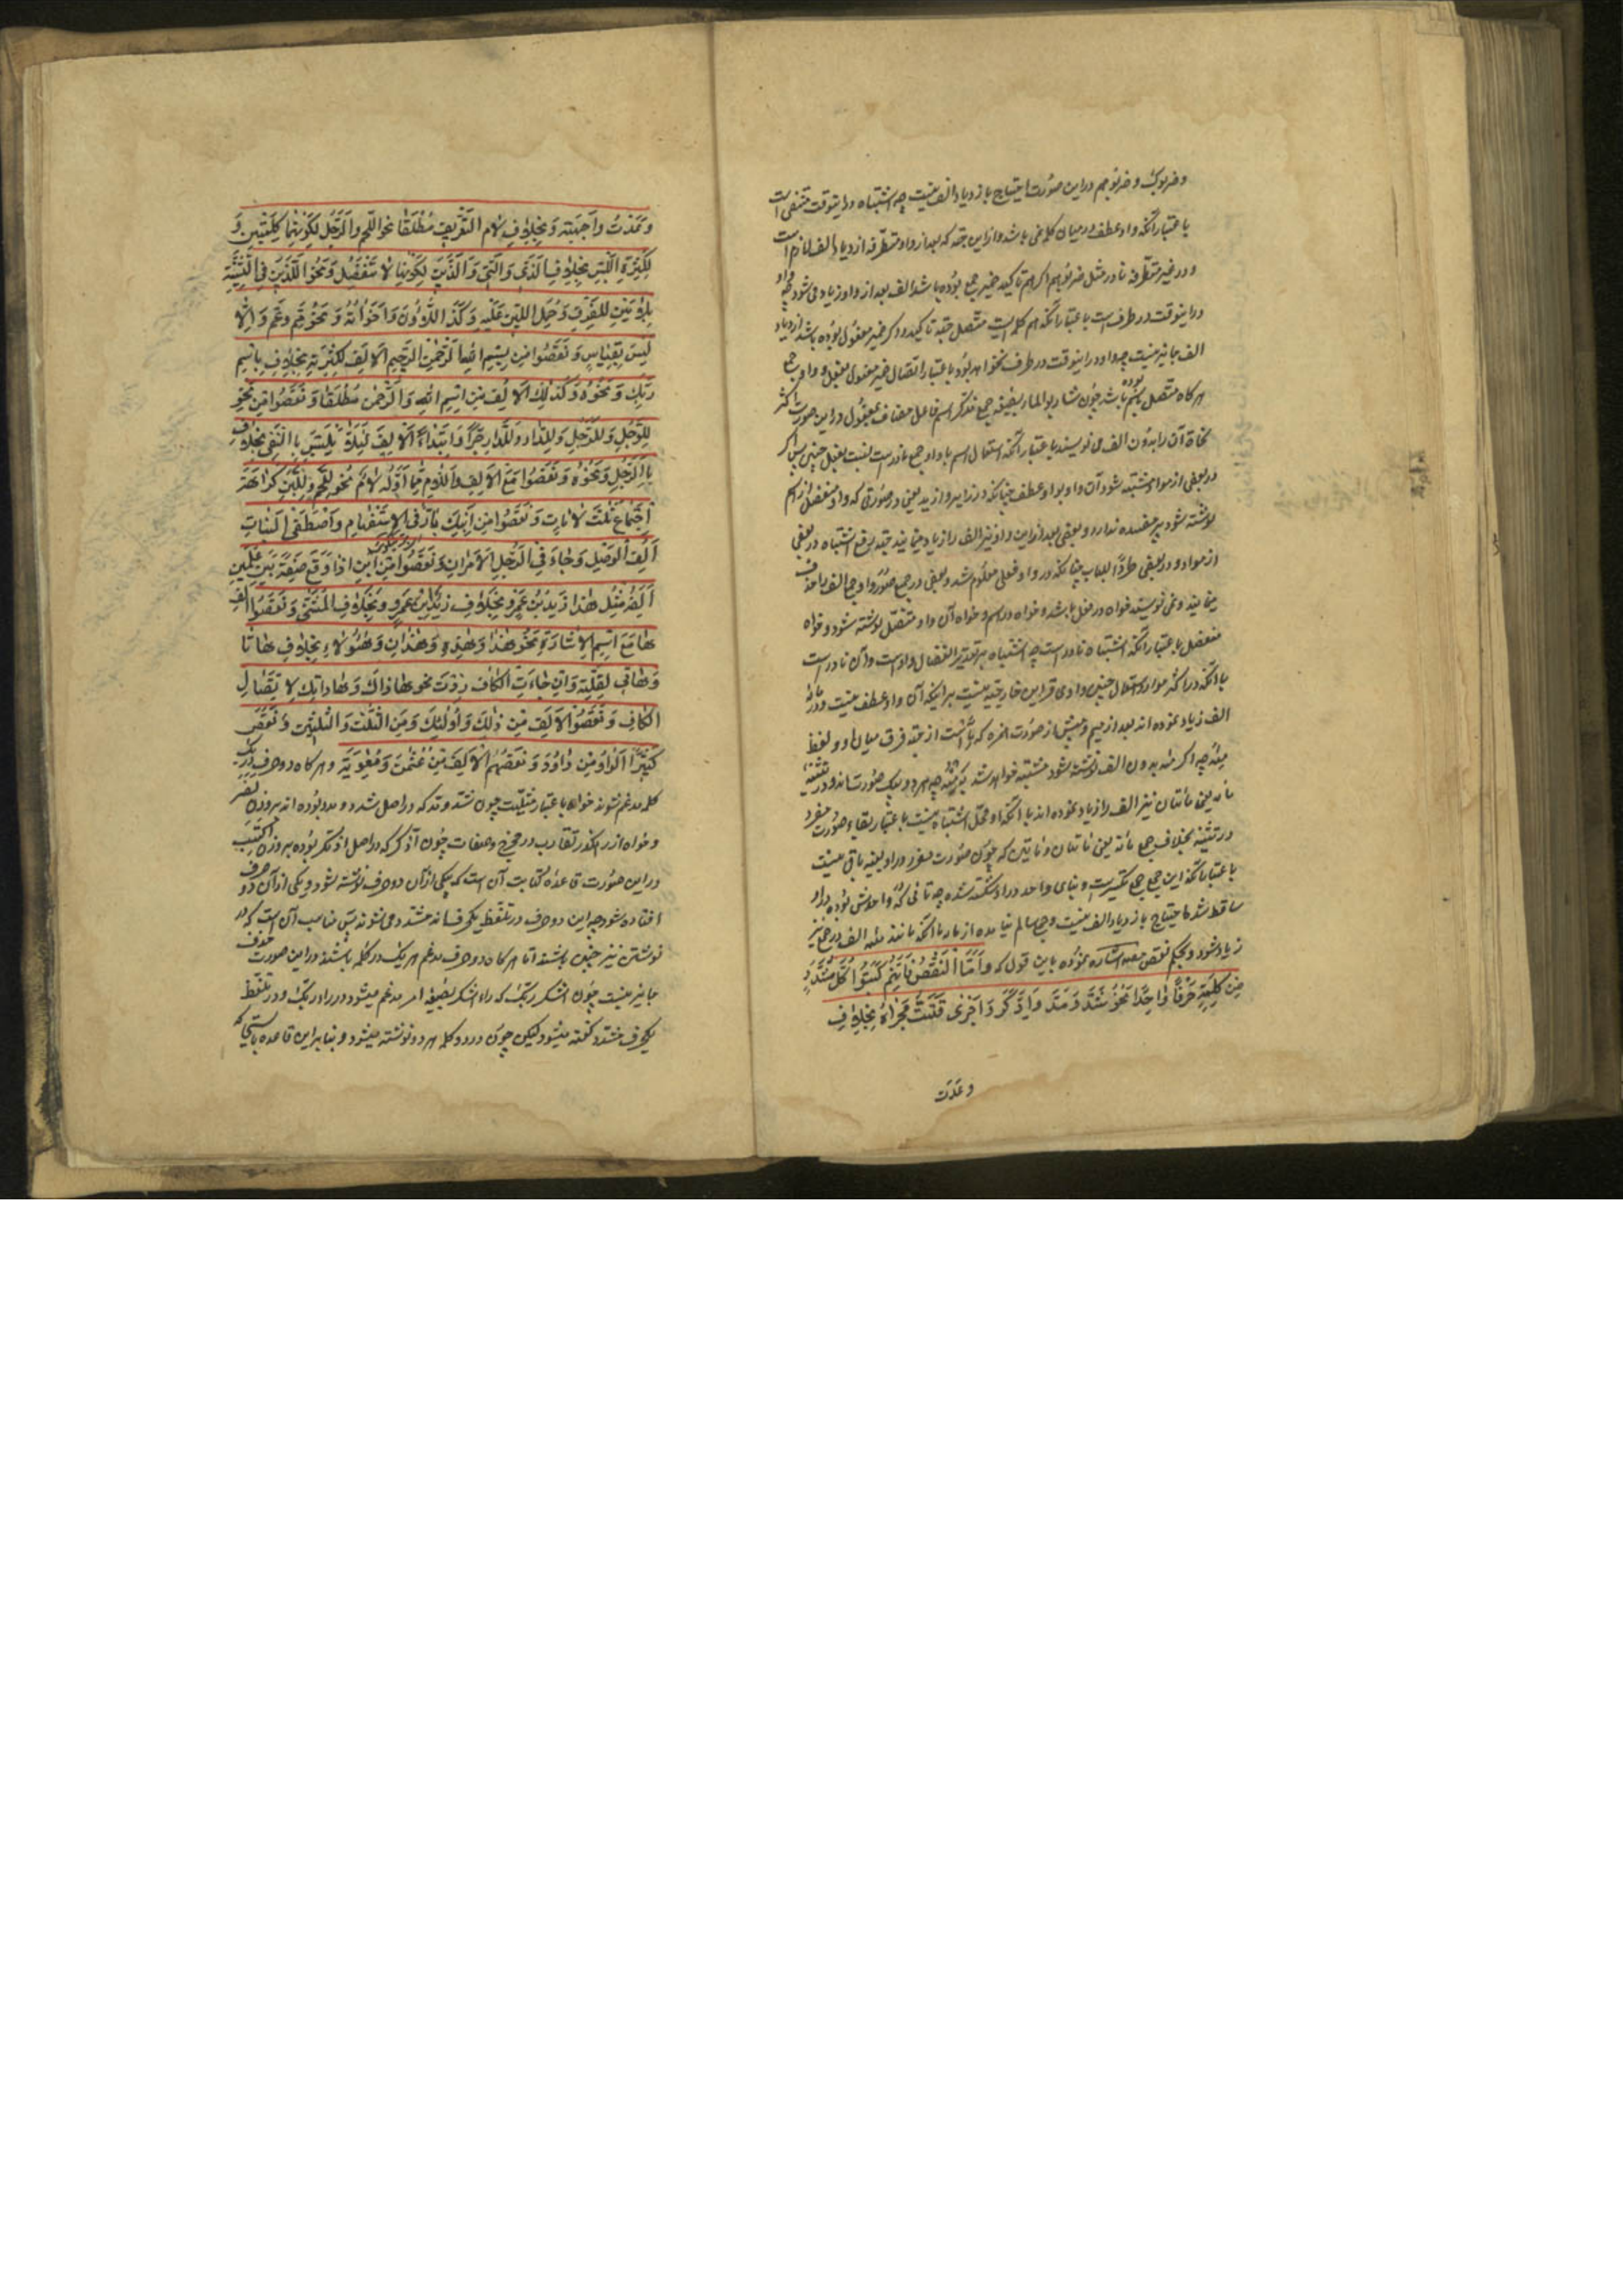 وضربوك وضربوهم دراین صورت احتیاج بازدیاد الف نیست چه اشتباه دراینوقت منتفی است
باعتبار آنکه واو عطف درمیان کلمه نمی باشد وازاین جهة که بعد از واو متطرفه ازدیاد الف لازم است
ودر غیر متطرفه نه در مثل ضربوا هم اگر هم تاکید ضمیر جمع بوده باشد الف بعد از واو زیاد می شود چه واو
دراینوقت در طرف است باعتبار آنکه هم کلمه ایست منفصل جهة تاکید و اگر ضمیر مفعول بوده باشد ازدیاد
الف جایز نیست چه واو دراینوقت در طرف نخواهد بود باعتبار اتصال ضمیر مفعول بفعل و واو جمع
هرگاه متصل باسم بوده باشد چون شاربو الماء بصیغه جمع مذکر اسم فاعل مضاف بمفعول دراین صورت اکثر
نحاة آن را بدون الف می نویسند باعتبار آنکه استعمال اسم با واو جمع نادر است نسبت بفعل پس اگر
در بعضی از مواد مشتبه شود آن واو بواو عطف چنانکه در زایر وازید یعنی درصورتی که واو منفصل از اسم
نوشته شود پر مفسده ندارد و بعضی بعد از این واو نیز الف را زیاد مینمایند جهة رفع اشتباه در بعضی
از مواد ودر بعضی طردًا للباب چنانکه در واو فعلی معلوم شد و بعضی در جمیع صور واو جمع الف را حذف
مینمایند ونمی نویسند خواه در فعل باشد وخواه در اسم وخواه آن واو متصل نوشته شود وخواه
منفصل باعتبار آنکه اشتباه نادر است چه اشتباه بر تقدیر انفصال واو است وآن نادر است
باآنکه در اکثر موارد استعمال چنین واوی قراین خارجیه هست برآنکه آن واو عطف نیست ودر مائة
الف زیاد نموده اند بعد از میم وپیش از صورت همزه که یا است از جهة فرق میان او ولفظ
منه چه اگر مئة بدون الف نوشته شود مشتبه خواهد شد بمنه چه هر دو بیک صورت اند ودر تثنیه
مائة یعنی مائتان نیز الف را زیاد نموده اند باآنکه او محل اشتباه نیست باعتبار بقاء صورت مفرد
در تثنیه بخلاف جمع مائة یعنی مئات ومئین که چون صورت مفرد در او بعینه باقی نیست
باعتبار آنکه این جمع جمع تکسیر است وبنای واحد در او شکسته شده چه تائی که در واحدش بوده در او
ساقط شد احتیاج بازدیاد الف نیست وجمع سالم نیامده از مائة باآنکه مانند مئة الف در جمع نیز
زیاد شود وبحکم نقص مصنف اشاره نموده باین قول که وَاَمَّا النَّقْصُ فَاِنَّهُمْ كَتَبُوا كُلَّ مُشَدَّدٍ
مِنْ كَلِمَةٍ حَرْفًا وَاحِدًا نَحْوُ شَدَّ وَمَدَّ وَادَّكَرَ وَاُجْرِىَ قَتَتُّ مَجْرَاهُ بِخِلَافِ
وعدت
وَعَدْتُ وَاجْبَهْهُ وَبِخِلَافِ لَامِ التَّعْرِيفِ مُطْلَقًا نَحْوُ اللَّحْمِ وَالرَّجُلِ لِكَوْنِهِمَا كَلِمَتَيْنِ وَ
لِكَثْرَةِ اللَّبْسِ بِخِلَافِ الَّذِى وَالَّتِى وَالَّذِينَ لِكَوْنِهَا لَا تَنْفَصِلُ وَنَحْوُ اللَّذَيْنِ فِى التَّثْنِيَةِ
بِلَامَيْنِ لِلْفَرْقِ وَحُمِلَ اللَّتَيْنِ عَلَيْهِ وَكَذَا اللَّاؤُنَ وَاَخَوَاتُهُ وَنَحْوُ عَمَّ وَمِمَّ وَاِلَّا
لَيْسَ بِقِيَاسٍ وَنَقَصُوا مِنْ بِسْمِ اللهِ الرَّحْمٰنِ الرَّحِيمِ الْاَلِفَ لِكَثْرَتِهِ بِخِلَافِ بِاسْمِ
رَبِّكَ وَنَحْوِهِ وَكَذٰلِكَ الْاَلِفَ مِنِ اسْمِ اللهِ وَالرَّحْمٰنِ مُطْلَقًا وَنَقَصُوا مِنْ نَحْوِ
لِلرَّجُلِ وَلَلرَّجُلُ وَلِلدَّارِ وَلَلدَّارُ جَرًّا وَابْتِدَاءً الْاَلِفَ لِئَلَّا يَلْتَبِسَ بِالنَّفْىِ بِخِلَافِ
بِالرَّجُلِ وَنَحْوِهِ وَنَقَصُوا مَعَ الْاَلِفِ وَاللَّامِ مِمَّا اَوَّلُهُ لَامٌ نَحْوُ لِلَّحْمِ وَلِلَّبَنِ كَرَاهَةَ
اجْتِمَاعِ ثَلٰثِ لَامَاتٍ وَنَقَصُوا مِنْ اَبْنُكَ بَارٌّ فِى الْاِسْتِفْهَامِ وَاَصْطَفَى الْبَنَاتِ
اَلِفَ الْوَصْلِ وَجَاءَ فِى الرَّجُلِ الْاَمْرَانِ وَنَقَصُوا مِنِ ابْنٍ اِذَا وَقَعَ صِفَةً بَيْنَ عَلَمَيْنِ
اَلِفَهُ مِثْلُ هٰذَا زَيْدُ بْنُ عَمْرٍو بِخِلَافِ زَيْدٌ ابْنُ عَمْرٍو وَبِخِلَافِ الْمُثَنَّى وَنَقَصُوا اَلِفَ
هَا مَعَ اسْمِ الْاِشَارَةِ نَحْوُ هٰذَا وَهٰذِهِ وَهٰذَانِ وَهٰؤُلَاءِ بِخِلَافِ هَاتَا
وَهَاتِى لِقِلَّتِهِ وَاِنْ جَاءَتِ الْكَافُ رُدَّتْ نحو هَاذَاكَ وَهَاذَانِكَ لِاتِّصَالِ
الْكَافِ وَنَقَصُوا الْاَلِفَ مِنْ ذٰلِكَ وَاُولٰئِكَ وَمِنَ الثَّلٰثِ وَالثَّلٰثِينَ وَنَقَصَ
كَثِيرٌ الْوَاوَ مِنْ دَاوُدَ وَنَقَصَهُمُ الْاَلِفَ مِنْ عُثْمٰنَ وَمُعٰوِيَةَ وهرگاه دو حرف در یک
کلمه مدغم شوند خواه باعتبار مثلیت چون شدّ ومدّ که در اصل شدد ومدد بوده اند بروزن نصر
وخواه از رهگذر تقارب در مخرج وصفات چون ادّکر که در اصل اذتکر بوده بروزن اکتسب
دراین صورت قاعده کتابت آن است که یکی از آن دو حرف نوشته شود ویکی از آن دو حرف
افتاده شود چه این دو حرف در تلفظ یکحرف مشدد می شوند پس مناسب آن است که در
نوشتن نیز چنین باشند اما هرگاه دو حرف مدغم هریک در کلمه باشند دراین صورت حذف
جایز نیست چون اشکر ربّک که راء اشکر بصیغه امر مدغم میشود در راء ربّک ودر تلفظ
یکحرف مشدد گفته میشود لیکن چون در دو کلمه اند هر دو نوشته میشود وبنابراین قاعده بایستی که